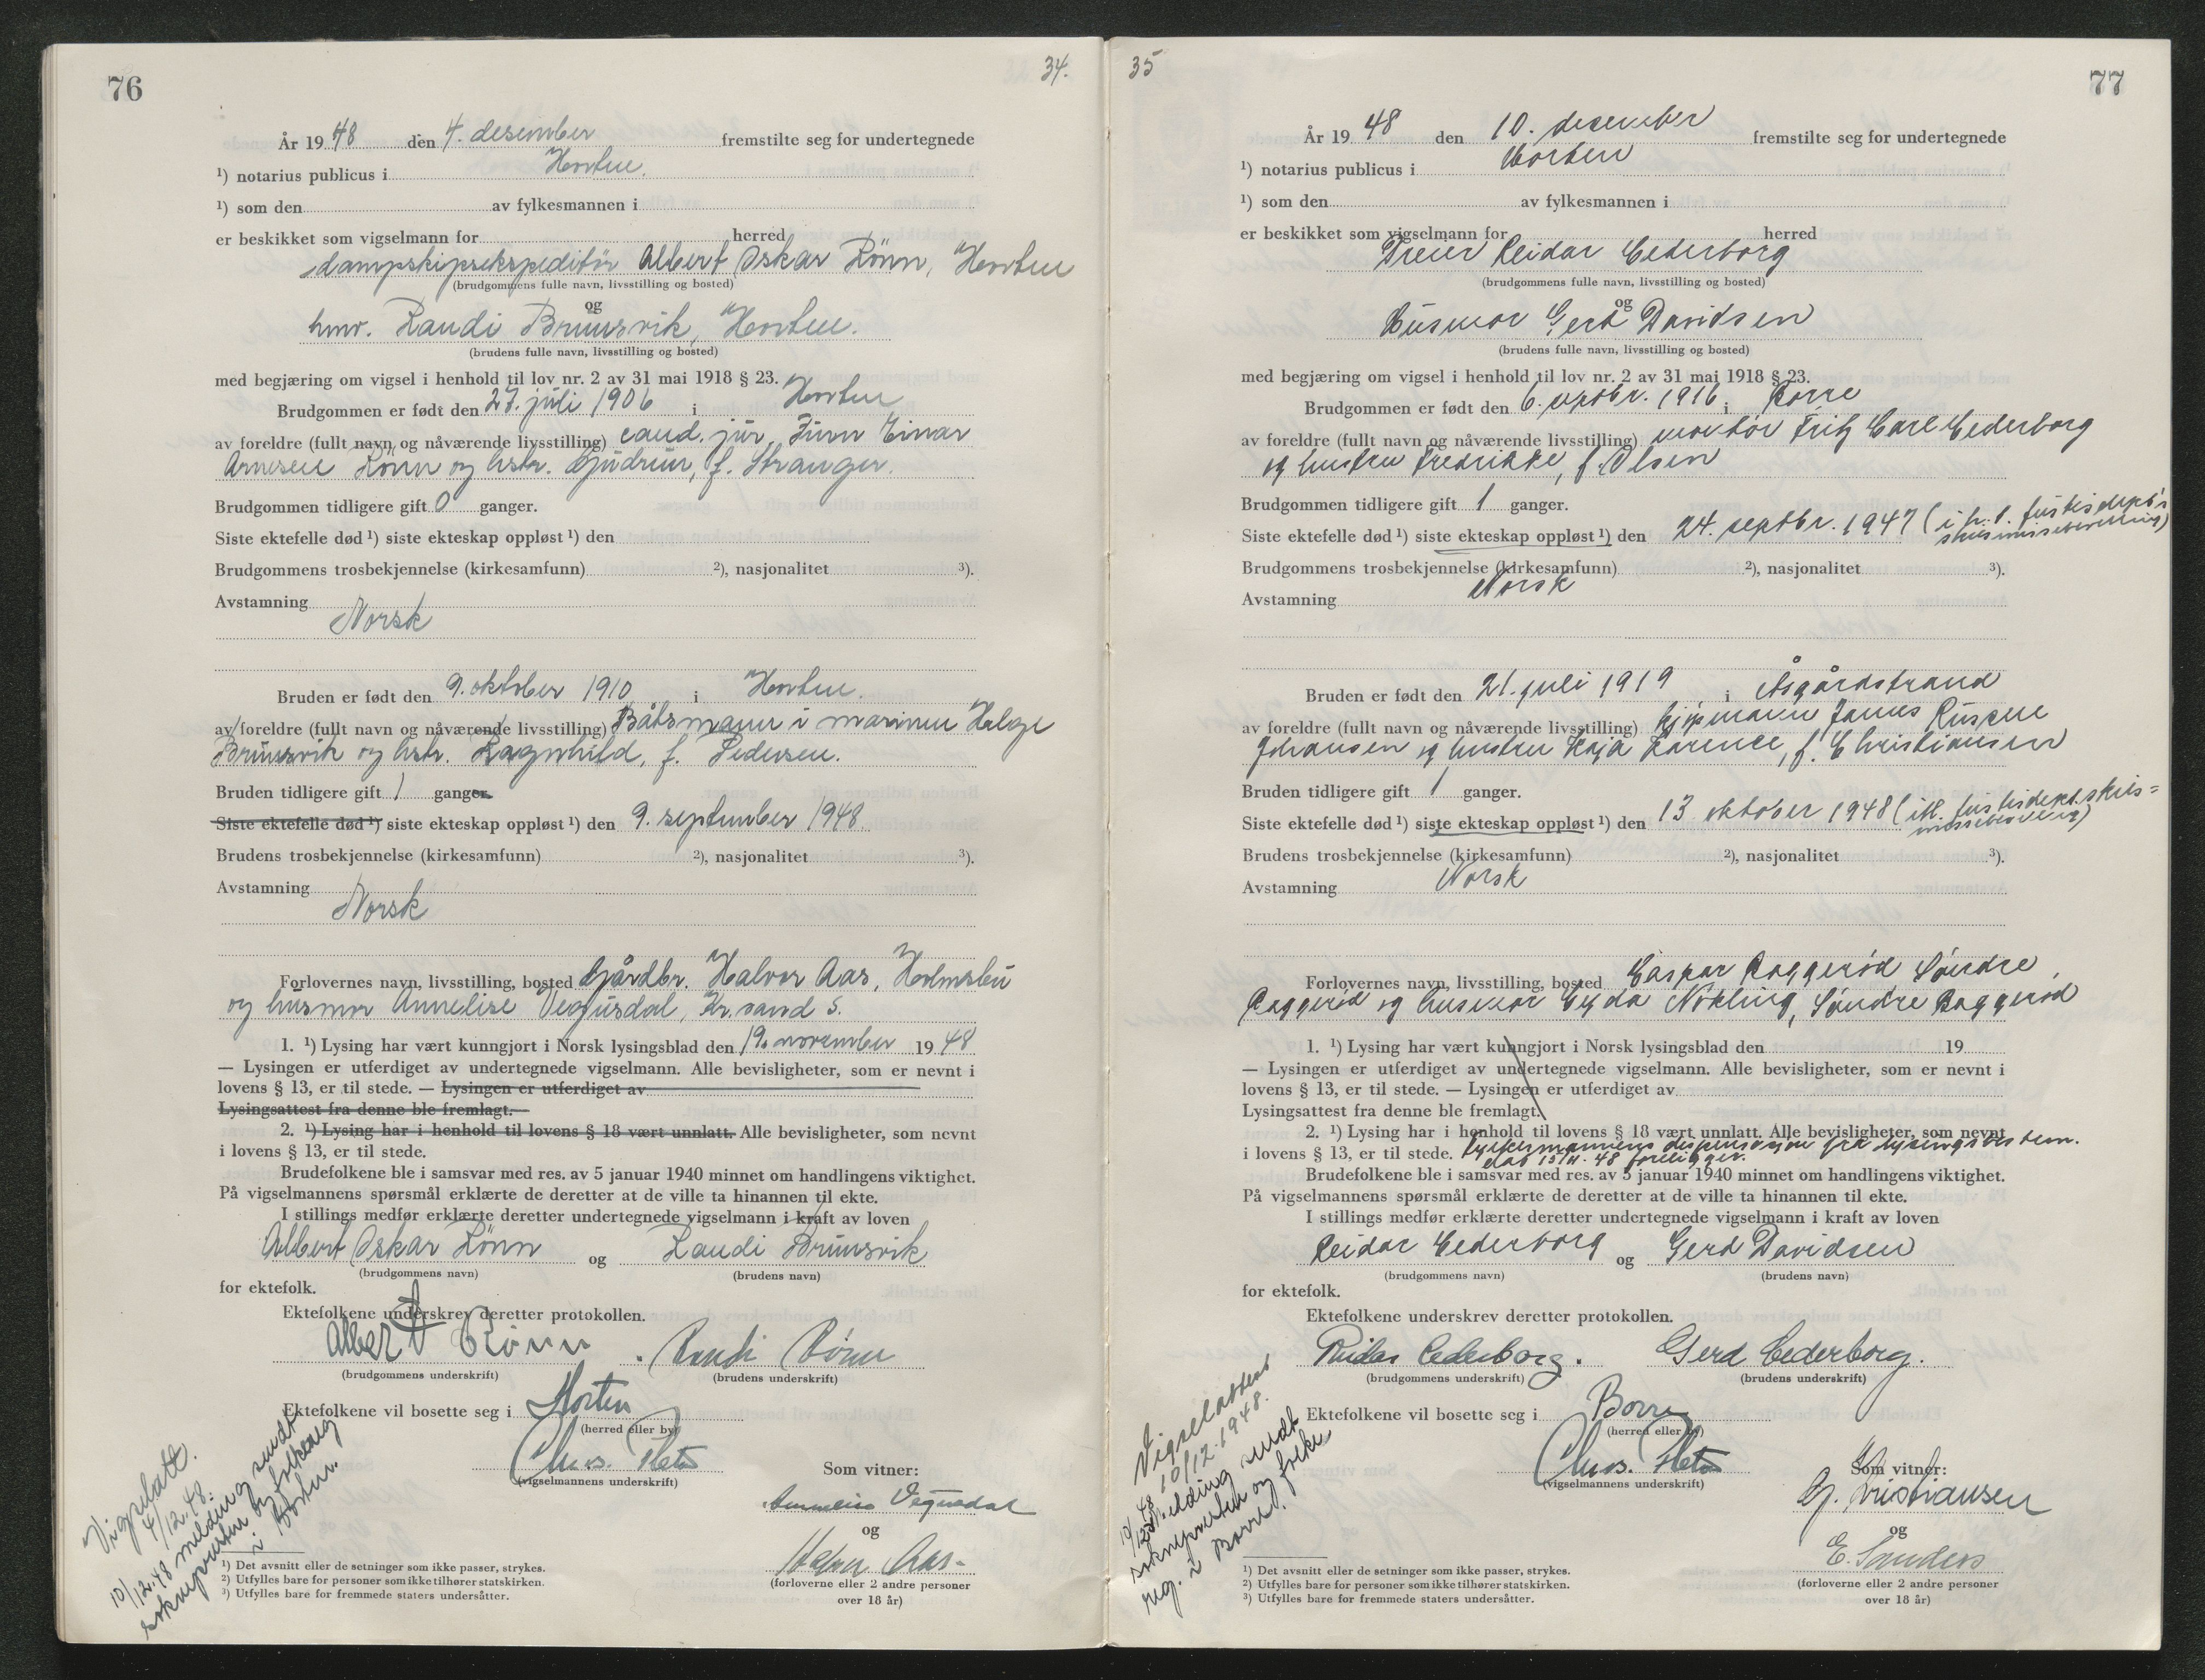 76
34.
År 19 48 den 4. desember fremstilte seg for undertegnede
¹) notarius publicus i Horten.
¹) som den av fylkesmannen i
er beskikket som vigselmann for herred
dampskipsekspeditör Albert Oskar Rönn, Horten
(brudgommens fulle navn, livsstilling og bosted)
og
hmv. Randi Brunsvik, Horten.
(brudens fulle navn, livsstilling og bosted)
med begjæring om vigsel i henhold til lov nr. 2 av 31 mai 1918 § 23.
Brudgommen er født den 27. juli 1906 i Horten
av foreldre (fullt navn og nåværende livsstilling) cand. jur. Finn Einar
Arnesen Rönn og hstr. Gudrun, f. Stranger.
Brudgommen tidligere gift 0 ganger.
Siste ektefelle død ¹) siste ekteskap oppløst ¹) den
Brudgommens trosbekjennelse (kirkesamfunn) ²), nasjonalitet ³).
Avstamning
Norsk
Bruden er født den 9. oktober 1910 i Horten.
av foreldre (fullt navn og nåværende livsstilling) Båtsmann i marinen Helge
Brunsvik og hstr. Ragnhild, f. Pedersen.
Bruden tidligere gift 1 ganger.
Siste ektefelle død ¹) siste ekteskap oppløst ¹) den 9. september 1948
Brudens trosbekjennelse (kirkesamfunn) ²), nasjonalitet ³).
Avstamning
Norsk
Forlovernes navn, livsstilling, bosted Gårdbr. Halvor Aas, Holmsbu
og husmor Annelise Vegusdal, Kr.sand S.
1. ¹) Lysing har vært kunngjort i Norsk lysingsblad den 19. november 19 48
— Lysingen er utferdiget av undertegnede vigselmann. Alle bevisligheter, som er nevnt i
lovens § 13, er til stede. — Lysingen er utferdiget av
Lysingsattest fra denne ble fremlagt.
2. ¹) Lysing har i henhold til lovens § 18 vært unnlatt. Alle bevisligheter, som nevnt
i lovens § 13, er til stede.
Brudefolkene ble i samsvar med res. av 5 januar 1940 minnet om handlingens viktighet.
På vigselmannens spørsmål erklærte de deretter at de ville ta hinannen til ekte.
I stillings medfør erklærte deretter undertegnede vigselmann i kraft av loven
Albert Oskar Rönn og Randi Brunsvik
(brudgommens navn) (brudens navn)
for ektefolk.
Ektefolkene underskrev deretter protokollen.
Albert Rönn Randi Rönn
(brudgommens underskrift) (brudens underskrift)
Ektefolkene vil bosette seg i Horten
(herred eller by)
(vigselmannens underskrift)
Som vitner:
Annelise Vegusdal
og
Halvor Aas
(forloverne eller 2 andre personer
over 18 år)
Vigselatt.
4/12.48.
10/12.48 melding sendt
soknepresten og folkereg
i Horten.
¹) Det avsnitt eller de setninger som ikke passer, strykes.
²) Utfylles bare for personer som ikke tilhører statskirken.
³) Utfylles bare for fremmede staters undersåtter.
35
77
År 19 48 den 10. desember fremstilte seg for undertegnede
¹) notarius publicus i Horten
¹) som den av fylkesmannen i
er beskikket som vigselmann for herred
Dreier Reidar Cederborg
(brudgommens fulle navn, livsstilling og bosted)
og
Husmor Gerd Davidsen
(brudens fulle navn, livsstilling og bosted)
med begjæring om vigsel i henhold til lov nr. 2 av 31 mai 1918 § 23.
Brudgommen er født den 6. septbr. 1916 i Borre
av foreldre (fullt navn og nåværende livsstilling) montör Fritz Carl Cederborg
og hustru Fredrikke, f. Olsen
Brudgommen tidligere gift 1 ganger.
Siste ektefelle død ¹) siste ekteskap oppløst ¹) den 24. septbr. 1947 (i h. t. justisdept's
skilsmissebevilling)
Brudgommens trosbekjennelse (kirkesamfunn) ²), nasjonalitet ³).
Avstamning Norsk
Bruden er født den 21. juli 1919 i Åsgårdstrand
av foreldre (fullt navn og nåværende livsstilling) kjøpmann James
Johansen og hustru Kaja Larence, f. Christiansen
Bruden tidligere gift 1 ganger.
Siste ektefelle død ¹) siste ekteskap oppløst ¹) den 13 oktober 1948 (justisdept. skils=
missebevilling)
Brudens trosbekjennelse (kirkesamfunn) ²), nasjonalitet ³).
Avstamning Norsk
Forlovernes navn, livsstilling, bosted Caspar Baggerød Søndre
Baggerød og husmor Nøkling, Søndre Baggerød
1. ¹) Lysing har vært kunngjort i Norsk lysingsblad den 19
— Lysingen er utferdiget av undertegnede vigselmann. Alle bevisligheter, som er nevnt i
lovens § 13, er til stede. — Lysingen er utferdiget av
Lysingsattest fra denne ble fremlagt.
2. ¹) Lysing har i henhold til lovens § 18 vært unnlatt. Alle bevisligheter, som nevnt
i lovens § 13, er til stede. Fylkesmannens dispensasjon fra lysingsbestem.
dat 15/11. 48 foreligger.
Brudefolkene ble i samsvar med res. av 5 januar 1940 minnet om handlingens viktighet.
På vigselmannens spørsmål erklærte de deretter at de ville ta hinannen til ekte.
I stillings medfør erklærte deretter undertegnede vigselmann i kraft av loven
Reidar Cederborg og Gerd Davidsen
(brudgommens navn) (brudens navn)
for ektefolk.
Ektefolkene underskrev deretter protokollen.
Reidar Cederborg. Gerd Cederborg.
(brudgommens underskrift) (brudens underskrift)
Ektefolkene vil bosette seg i Borre
(herred eller by)
(vigselmannens underskrift)
Som vitner:
G. Kristiansen
og
E. Sanders
(forloverne eller 2 andre personer
over 18 år)
Vigselattest
10/12.1948.
10/12.48 melding sendt
soknepresten og folke
reg. i Borre.
¹) Det avsnitt eller de setninger som ikke passer, strykes.
²) Utfylles bare for personer som ikke tilhører statskirken.
³) Utfylles bare for fremmede staters undersåtter.